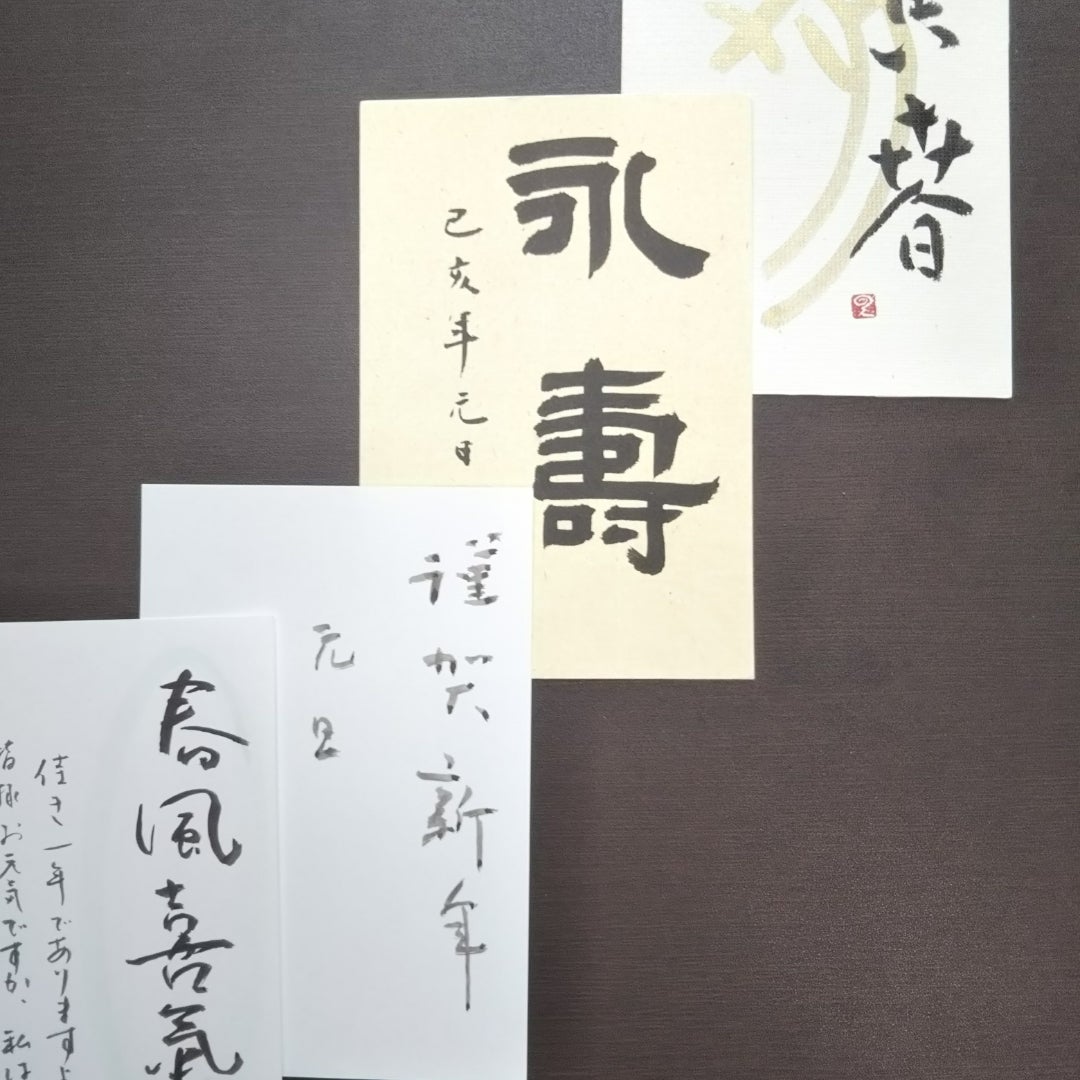 春
永壽
己亥年元日
謹賀新年
元旦
春風喜氣
佳き一年であります
皆様お元気ですか、私は